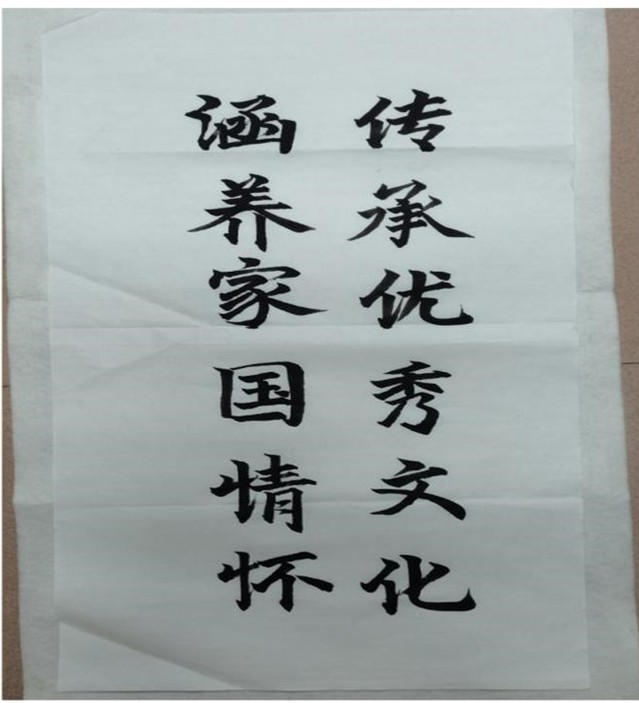 传承优秀文化
涵养家国情怀